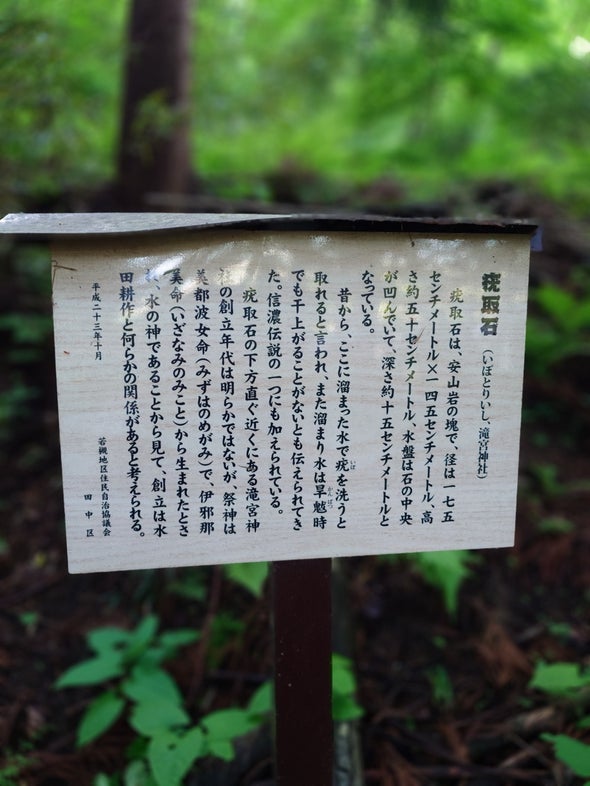 疣取石（いぼとりいし、滝宮神社）
疣取石は、安山岩の塊で、径は一七五
センチメートル×一四五センチメートル、高
さ約五十センチメートル、水盤は石の中央
が凹んでいて、深さ約十五センチメートルと
なっている。
昔から、ここに溜まった水で疣を洗うと
いぼ
取れると言われ、また溜まり水は旱魃時
かんばつ
でも干上がることがないとも伝えられてき
た。信濃伝説の一つにも加えられている。
疣取石の下方直ぐ近くにある滝宮神
社の創立年代は明らかではないが、祭神は
美都波女命（みずはのめがみ）で、伊邪那
美命（いざなみのみこと）から生まれたとさ
、水の神であることから見て、創立は水
田耕作と何らかの関係があると考えられる。
平成二十三年十月
若槻地区住民自治協議会
田中区